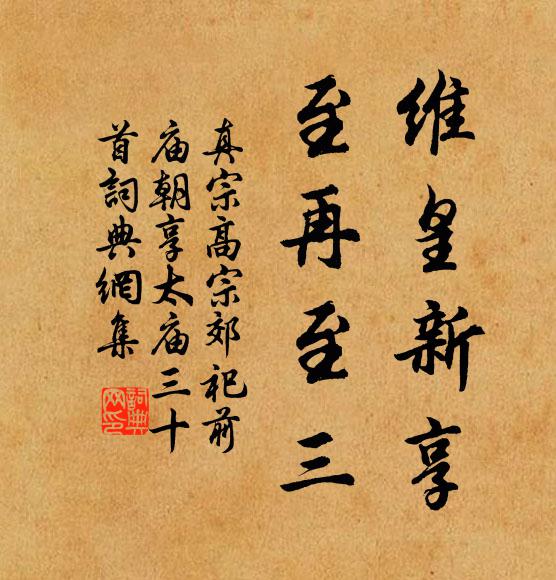 维皇新享
至再至三
真宗高宗郊祀前
庙朝享太庙三十
首詞典網集
詞典
网印